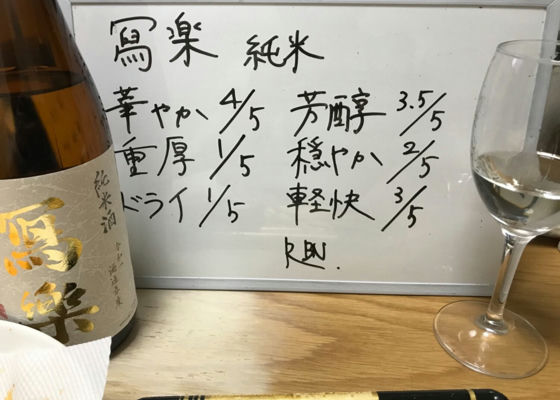 冩楽 純米
華やか 4/5 芳醇 3.5/5
重厚 1/5 穏やか 2/5
ドライ 1/5 軽快 3/5
純米酒
冩楽